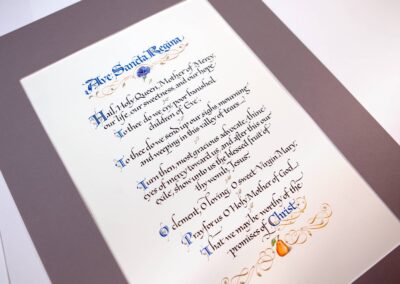 Ave Sancta Regina
Hail, Holy Queen, Mother of Mercy,
our life, our sweetness, and our hope.
To thee do we cry, poor banished
children of Eve;
To thee do we send up our sighs, mourning
and weeping in this valley of tears...
Turn then, most gracious advocate, thine
eyes of mercy toward us, and after this our
exile, show unto us the blessed fruit of
thy womb, Jesus;
O clement, O loving, O sweet Virgin Mary;
Pray for us, O Holy Mother of God,
That we may be worthy of the
promises of Christ.